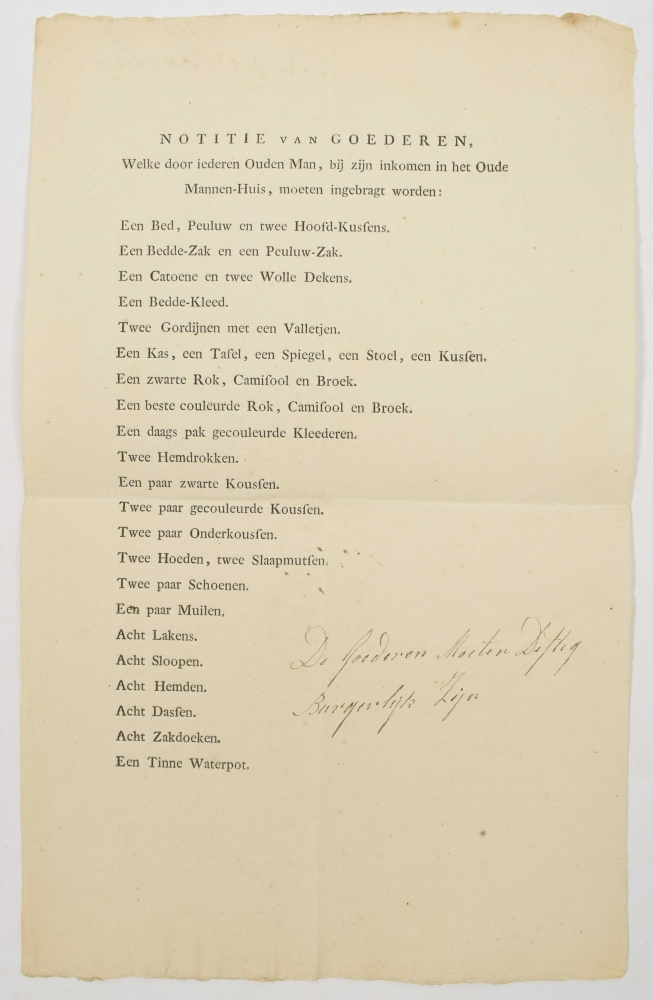 NOTITIE VAN GOEDEREN,
Welke door iederen Ouden Man, bij zijn inkomen in het Oude
Mannen-Huis, moeten ingebragt worden:
Een Bed, Peuluw en twee Hoofd-Kusſens.
Een Bedde-Zak en een Peuluw-Zak.
Een Catoene en twee Wolle Dekens.
Een Bedde-Kleed.
Twee Gordijnen met een Valletjen.
Een Kas, een Tafel, een Spiegel, een Stoel, een Kusſen.
Een zwarte Rok, Camiſool en Broek.
Een beste couleurde Rok, Camiſool en Broek.
Een daags pak gecouleurde Kleederen.
Twee Hemdrokken.
Een paar zwarte Kousſen.
Twee paar gecouleurde Kousſen.
Twee paar Onderkousſen.
Twee Hoeden, twee Slaapmutſen.
Twee paar Schoenen.
Een paar Muilen.
Acht Lakens.
Acht Sloopen.
Acht Hemden.
Acht Dasſen.
Acht Zakdoeken.
Een Tinne Waterpot.
De Goederen Moeten Deftig
Burgerlijk Zijn